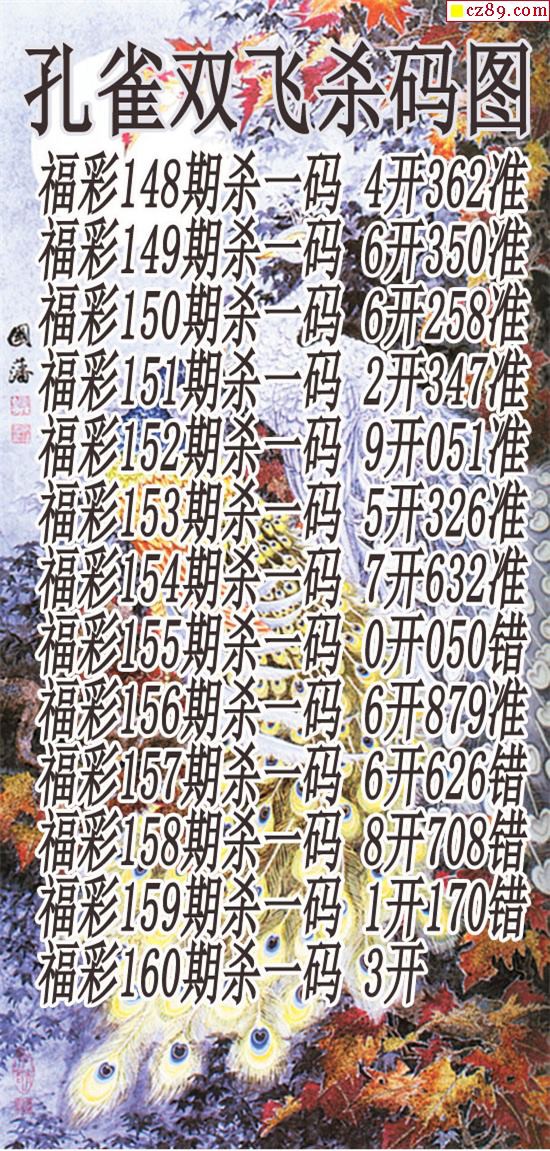 cz89.com
孔雀双飞杀码图
福彩148期杀一码 4开362准
福彩149期杀一码 6开350准
福彩150期杀一码 6开258准
福彩151期杀一码 2开347准
福彩152期杀一码 9开051准
福彩153期杀一码 5开326准
福彩154期杀一码 7开632准
福彩155期杀一码 0开050错
福彩156期杀一码 6开879准
福彩157期杀一码 6开626错
福彩158期杀一码 8开708错
福彩159期杀一码 1开170错
福彩160期杀一码 3开
國藩